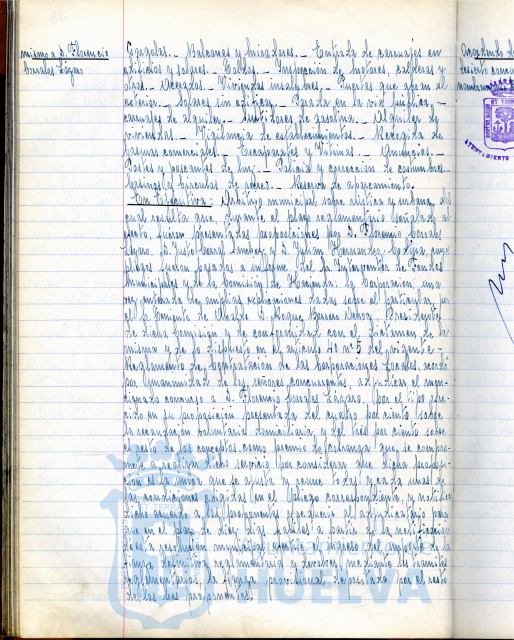 mismo a D. Florencio
Corrales Lázaro
Gárgolas.- Balcones y miradores.- Entrada de carruajes en
edificios y solares. Toldos.- Inspección de motores, calderas y
otros.- Viviendas insalubres.- Puertas que abran al
exterior.- Solares sin edificar.- Parada en la vía pública,-
carruajes de alquiler.- Surtidores de gasolina.- Alquiler de
viviendas.- Vigilancia de establecimientos.- Recogida de
basuras comerciales.- Escaparates y Vitrinas.- Anuncios.-
Postes y de luz.- Policía y corrección de costumbres.
Casinos y Círculos de recreo.- Reserva de aparcamiento.
En Ejecutiva: Arbitrio municipal sobre rústica y urbana, del
cual resulta que durante el plazo reglamentario señalado al
efecto, fueron presentadas proposiciones por D. Florencio Corrales
Lázaro, D. Justo y D. Julián Hernández cuyos
pliegos fueron pasados a informe del Sr. Interventor de Fondos
Municipales y de la Comisión de Hacienda; la Corporación, una
vez enterada de amplias explicaciones dadas sobre el particular, por
el Sr. Teniente de Alcalde D. Roque Presidente
de dicha Comisión y de conformidad con el dictamen de la
misma y de lo dispuesto en el artículo 40 nº 5 del vigente-
Reglamento de Contratación de las Corporaciones Locales, acordó
por unanimidad de los señores concurrentes, adjudicar el men-
cionado concurso a D. Florencio Corrales Lázaro, por el tipo ofre-
cido en su proposición presentada del cuatro por ciento sobre
la recaudación voluntaria domiciliaria y del tres por ciento sobre
el resto de los conceptos como premio de cobranza que se compro-
mete a realizar dicho servicio por considerar que dicha proposi-
ción es la única que se ajusta y reúne todas y cada una de
las condiciones exigidas en el Pliego correspondiente, y notificar
dicho acuerdo a los proponentes y requerir al adjudicatario para
que en el plazo de diez días hábiles a partir de la notificación
de esta resolución municipal, efectúe el ingreso del importe de la
fianza definitiva reglamentaria y devolver, mediante los trámites
reglamentarios la fianza provisional depositada por el resto
de los tres proponentes.
AYUNTAMIENTO
HUELVA